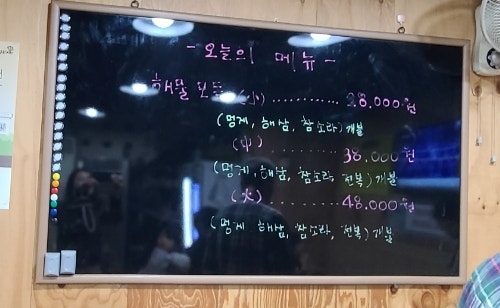 - 오늘의 메뉴 -
해물모듬 (小) ............ 28.000원
(멍게, 해삼, 참소라) 개불
(中) ......... 38.000원
(멍게, 해삼, 참소라, 전복) 개불
(大) ......... 48.000원
(멍게 해삼, 참소라, 전복) 개불